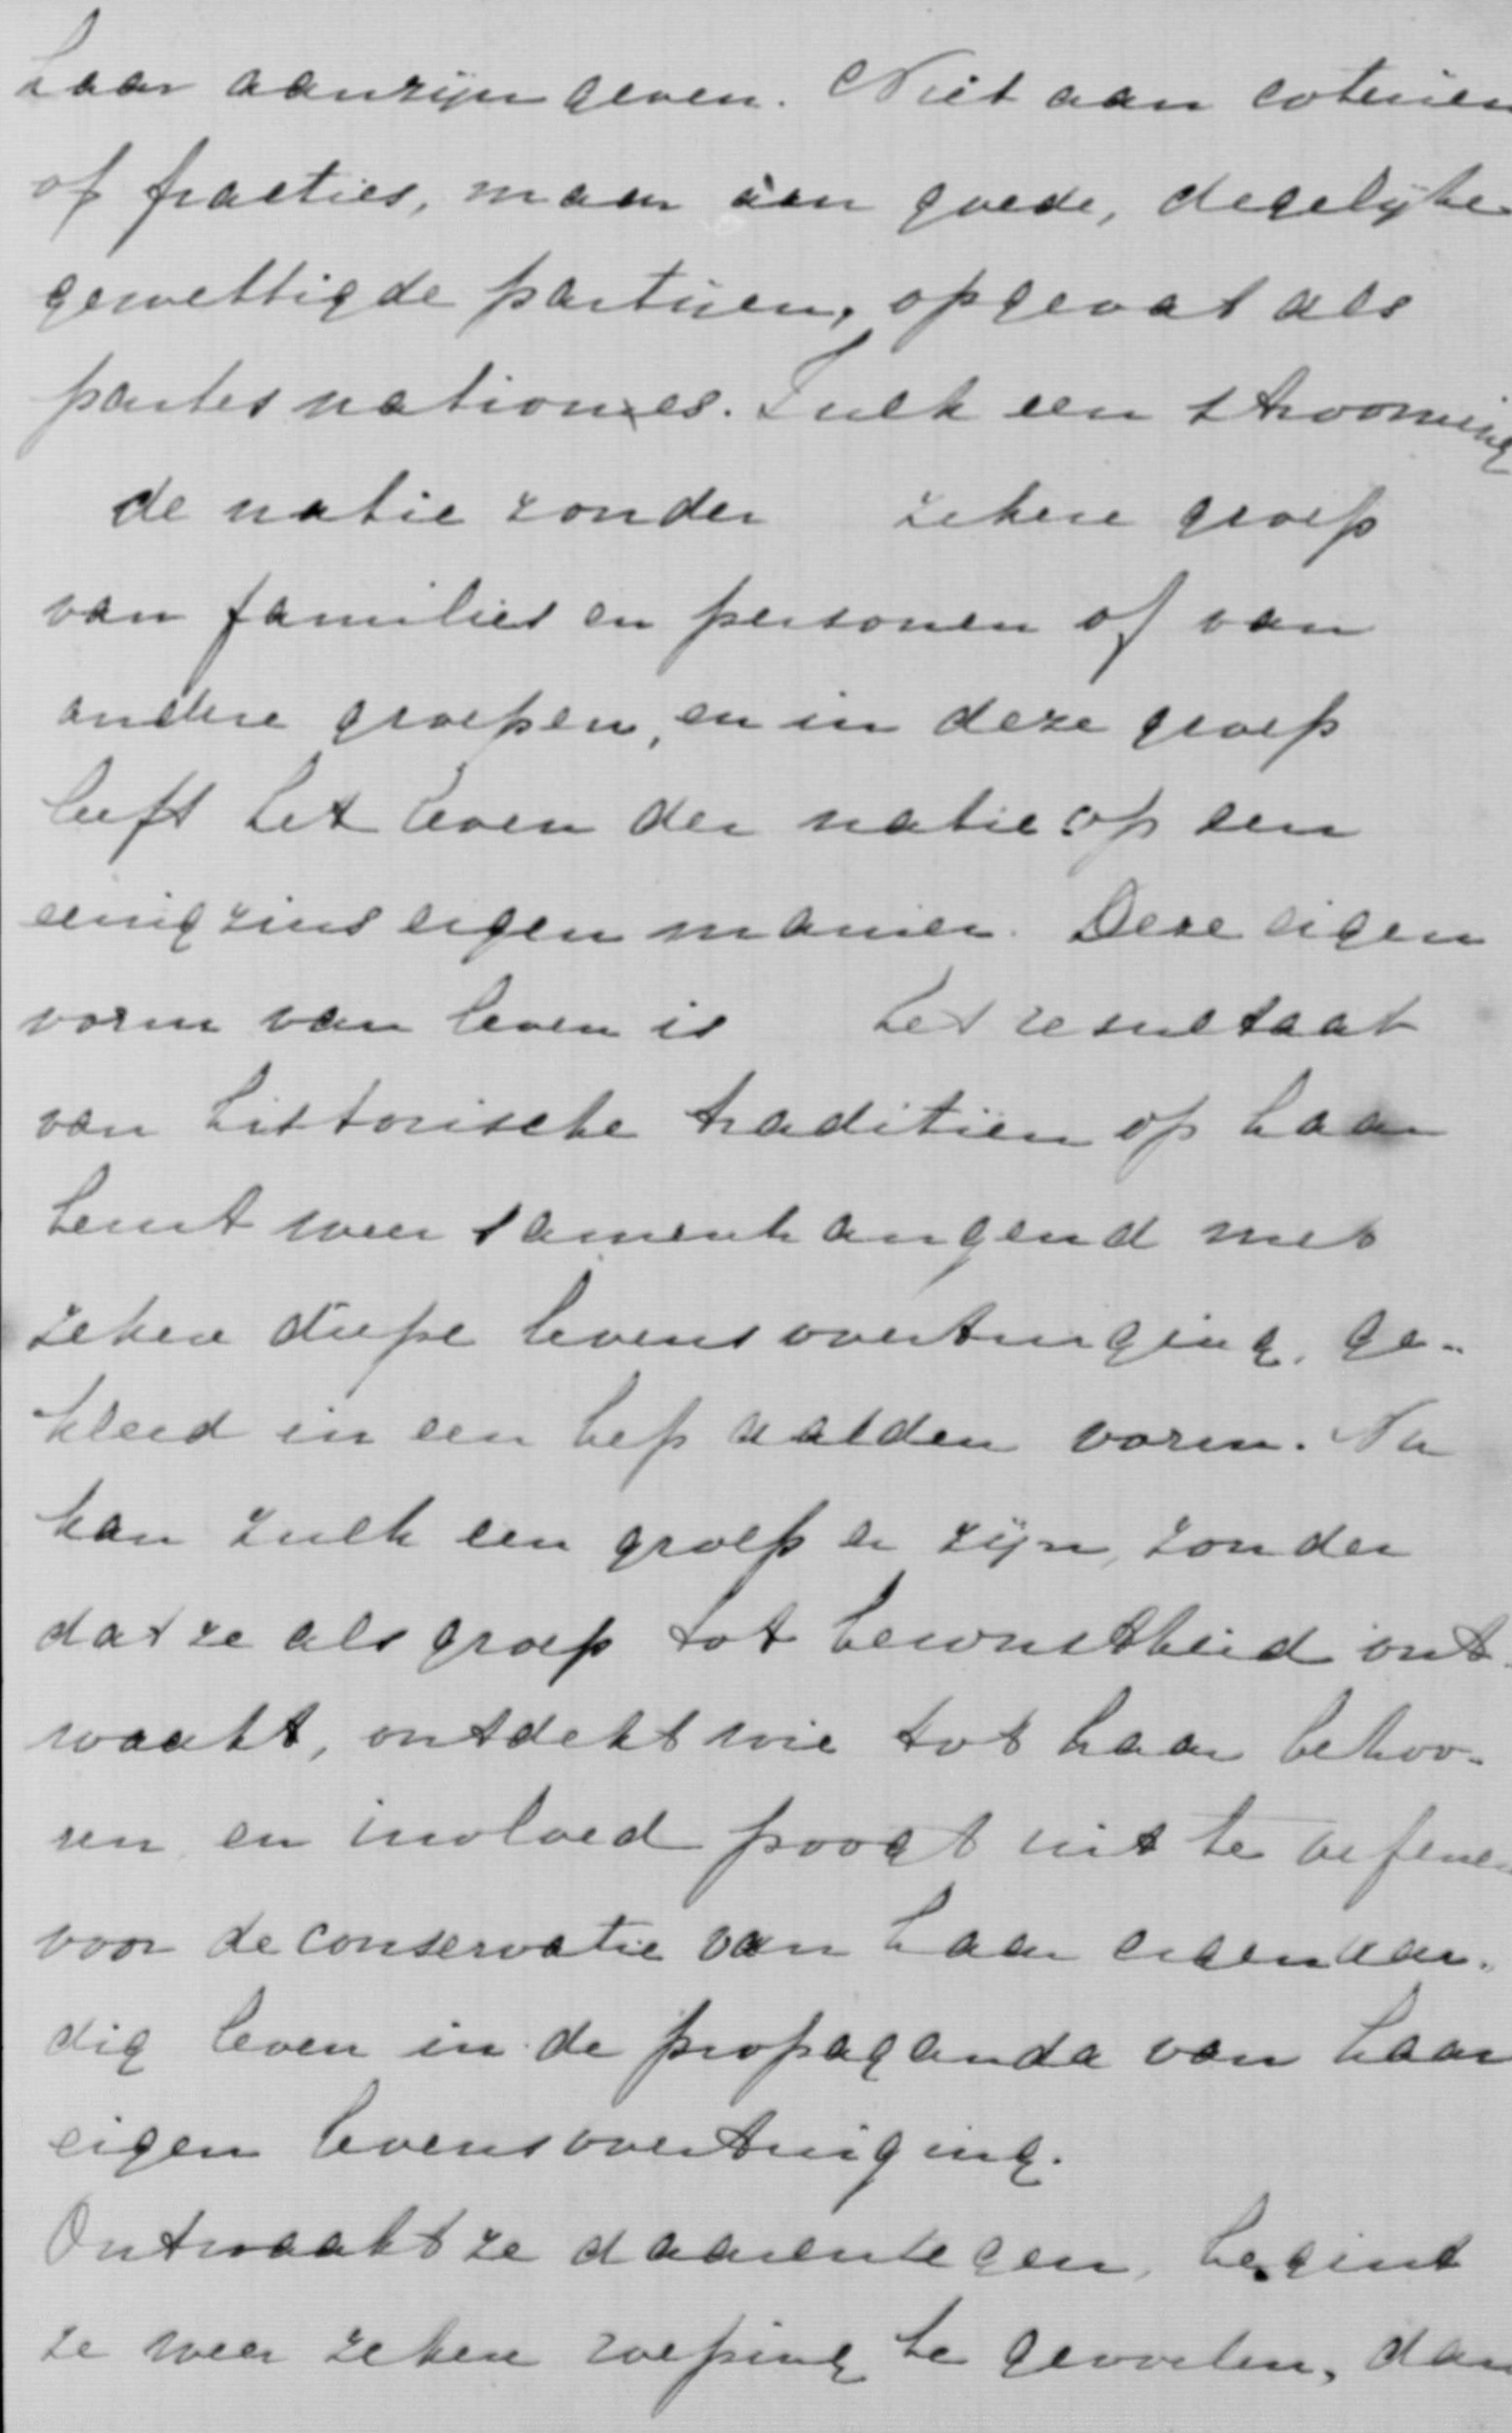 haar aanzijn geven. Niet aan coterieën
of fracties, maar aan goede, degelijke
gewettigde partijen, opgevat als
partes nationes. Zulk een strooming
de natie zonder zekere groep
van families en personen of van
andere groepen, en in deze groep
leeft het leven der natie op een
eenigzins eigen manier. Deze eigen
vorm van leven is het resultaat
van historische traditiën op haar
beurt weer samenhangend met
zekere diepe levensovertuiging, ge-
kleed in een bepaalden vorm. Nu
kan zulk een groep er zijn, zonder
dat ze als groep tot bewustheid ont-
waakt, ontdekt wie tot haar behoo-
ren en invloed poogt uit te oefenen
voor de conservatie van haar eigenaar-
dig leven in de propaganda van haar
eigen levensovertuiging.
Ontwaakt ze daarentegen, begint
ze weer zekere roeping te gevoelen, dan